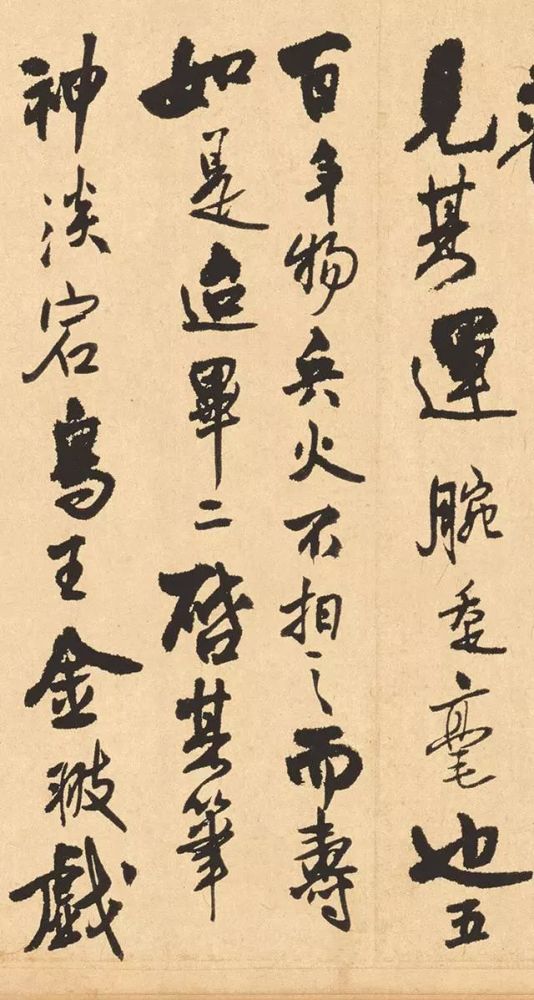 見其運腕垂毫也五
百年物兵火不相之而壽
如是迨畢二啓其筆
神淡宕王金戲